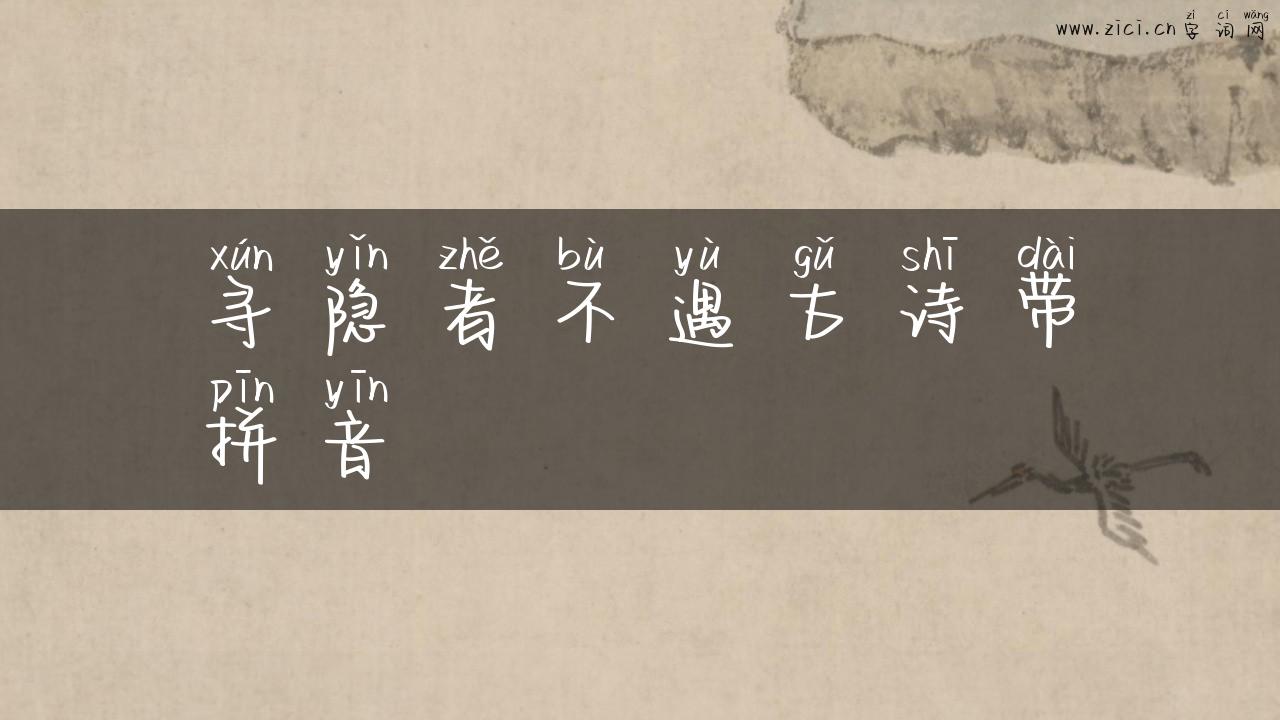 zì cí wǎng
www.zici.cn 字词网
xún yǐn zhě bù yù gǔ shī dài
寻隐者不遇古诗带
pīn yīn
拼音